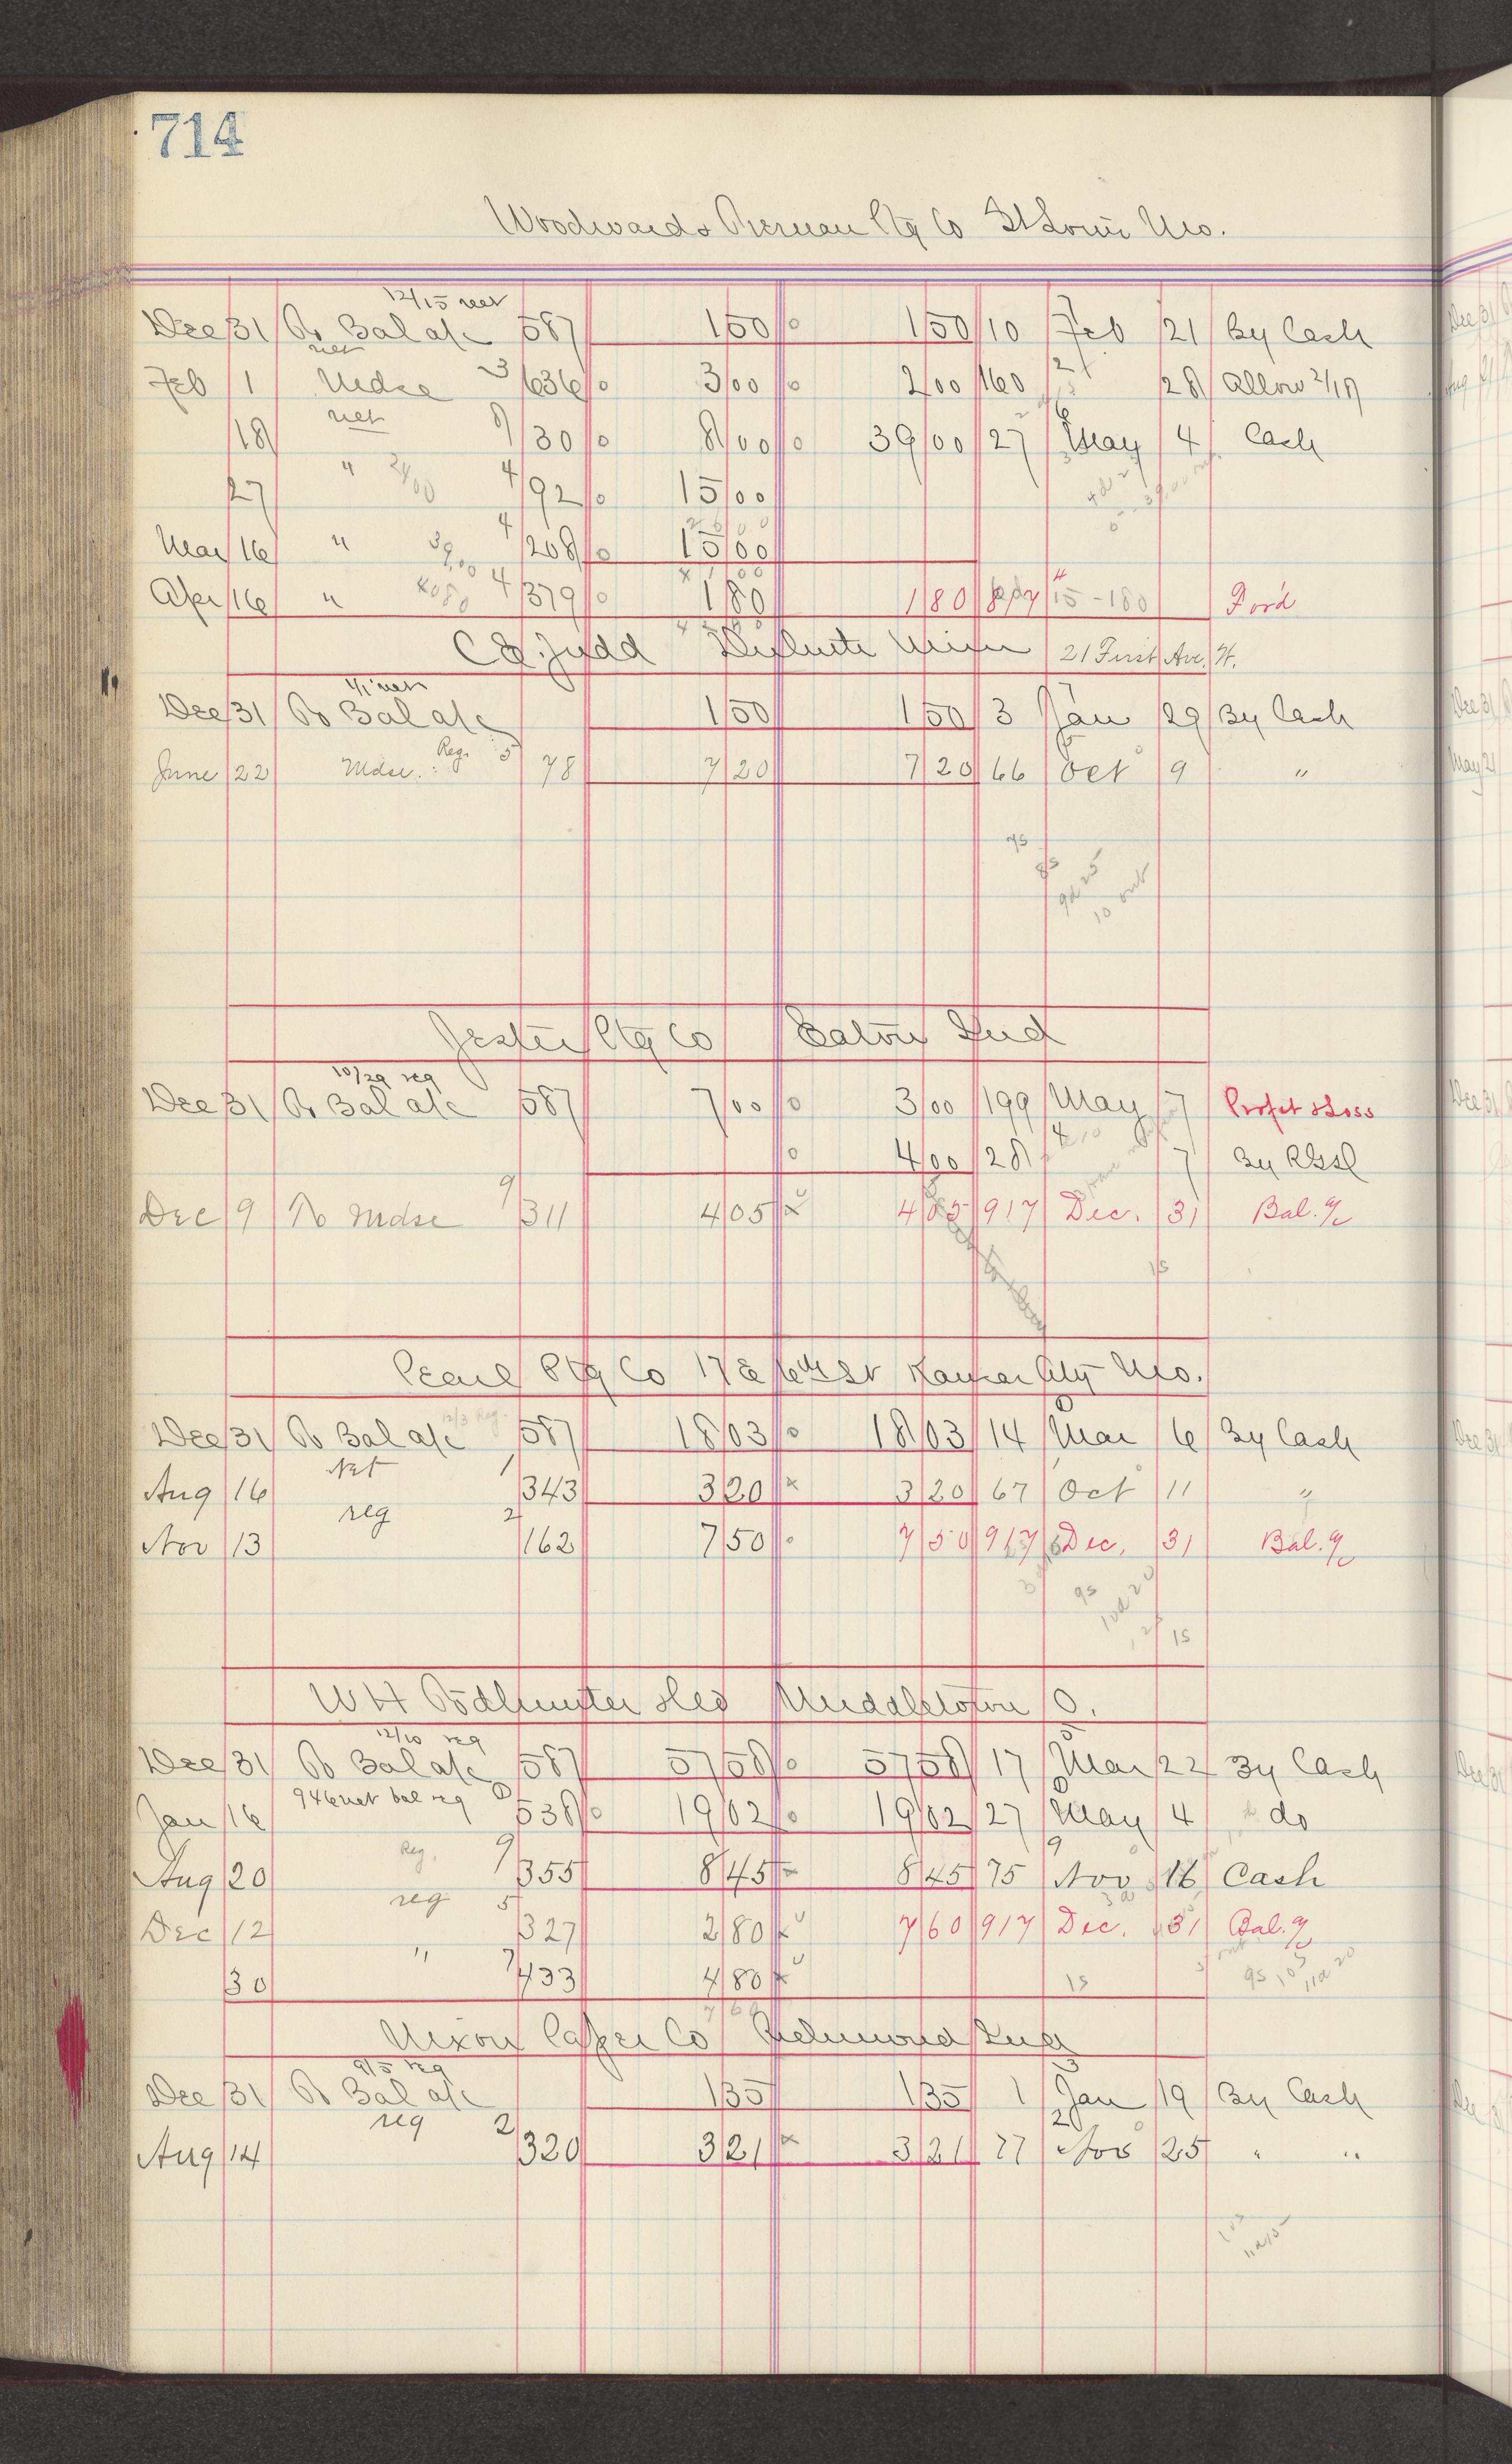 714
Woodward & Tiernan Ptg Co St Louis Mo.
12/15 net
Dec 31 To Bal a/c 587 1 50 0 1 50 10 Feb 21 By Cash
net
Feb 1 Mdse 3 636 0 3 00 0 2 00 160 28 Allow 2/18
net
18 8 30 0 8 00 0 39 00 27 May 4 Cash
27 " 24 00 4 92 0 15 00
26 00
Mar 16 " 39,00 4 208 0 15 00
41 00
Apr 16 " 4080 4 379 0 1 80 1 80 15-180 For'd
C E. Judd Duluth Minn 21 First Ave. W.
1/1 net
Dec 31 To Bal a/c 1 50 1 50 3 Jan 29 By Cash
June 22 Mdse. Reg. 5 78 7 20 7 20 66 Oct 9 "
7s
8s
9d 25
10 out
Jester Ptg Co Eaton Ind
10/29 reg
Dec 31 To Bal a/c 587 7 00 0 3 00 199 May 7 Profit & Loss
0 4 00 28 7 By
Dec 9 To Mdse 9 311 4 05 x 4 05 917 Dec. 31 Bal. a/c
1s
Pearl Ptg Co 17 E 6th St Kansas City Mo.
12/3 Reg.
Dec 31 To Bal a/c 587 18 03 0 18 03 14 Mar 6 By Cash
Net
Aug 16 1 343 3 20 x 3 20 67 Oct 11 "
reg
Nov 13 2 162 7 50 0 7 50 917 Dec. 31 Bal. a/c
9s
1s
W H Todhunter & Co Middletown O.
12/10 reg
Dec 31 To Bal a/c 587 57 58 0 57 58 17 Mar 22 By Cash
946 net bal reg
Jan 16 0 538 0 19 02 0 19 02 27 May 4 do
Reg.
Aug 20 9 355 8 45 8 45 75 Nov 16 Cash
reg
Dec 12 5 327 2 80 x 7 60 917 Dec. 31 Bal. a/c
30 " 7 433 4 80 x 1s 9s 10s 11d 20
7 60
Nixon Paper Co Richmond Ind
9/5 reg
Dec 31 To Bal a/c 1 35 1 35 1 Jan 19 By Cash
reg
Aug 14 2 320 3 21 x 3 21 77 Nov 25 " "
10s
11d15